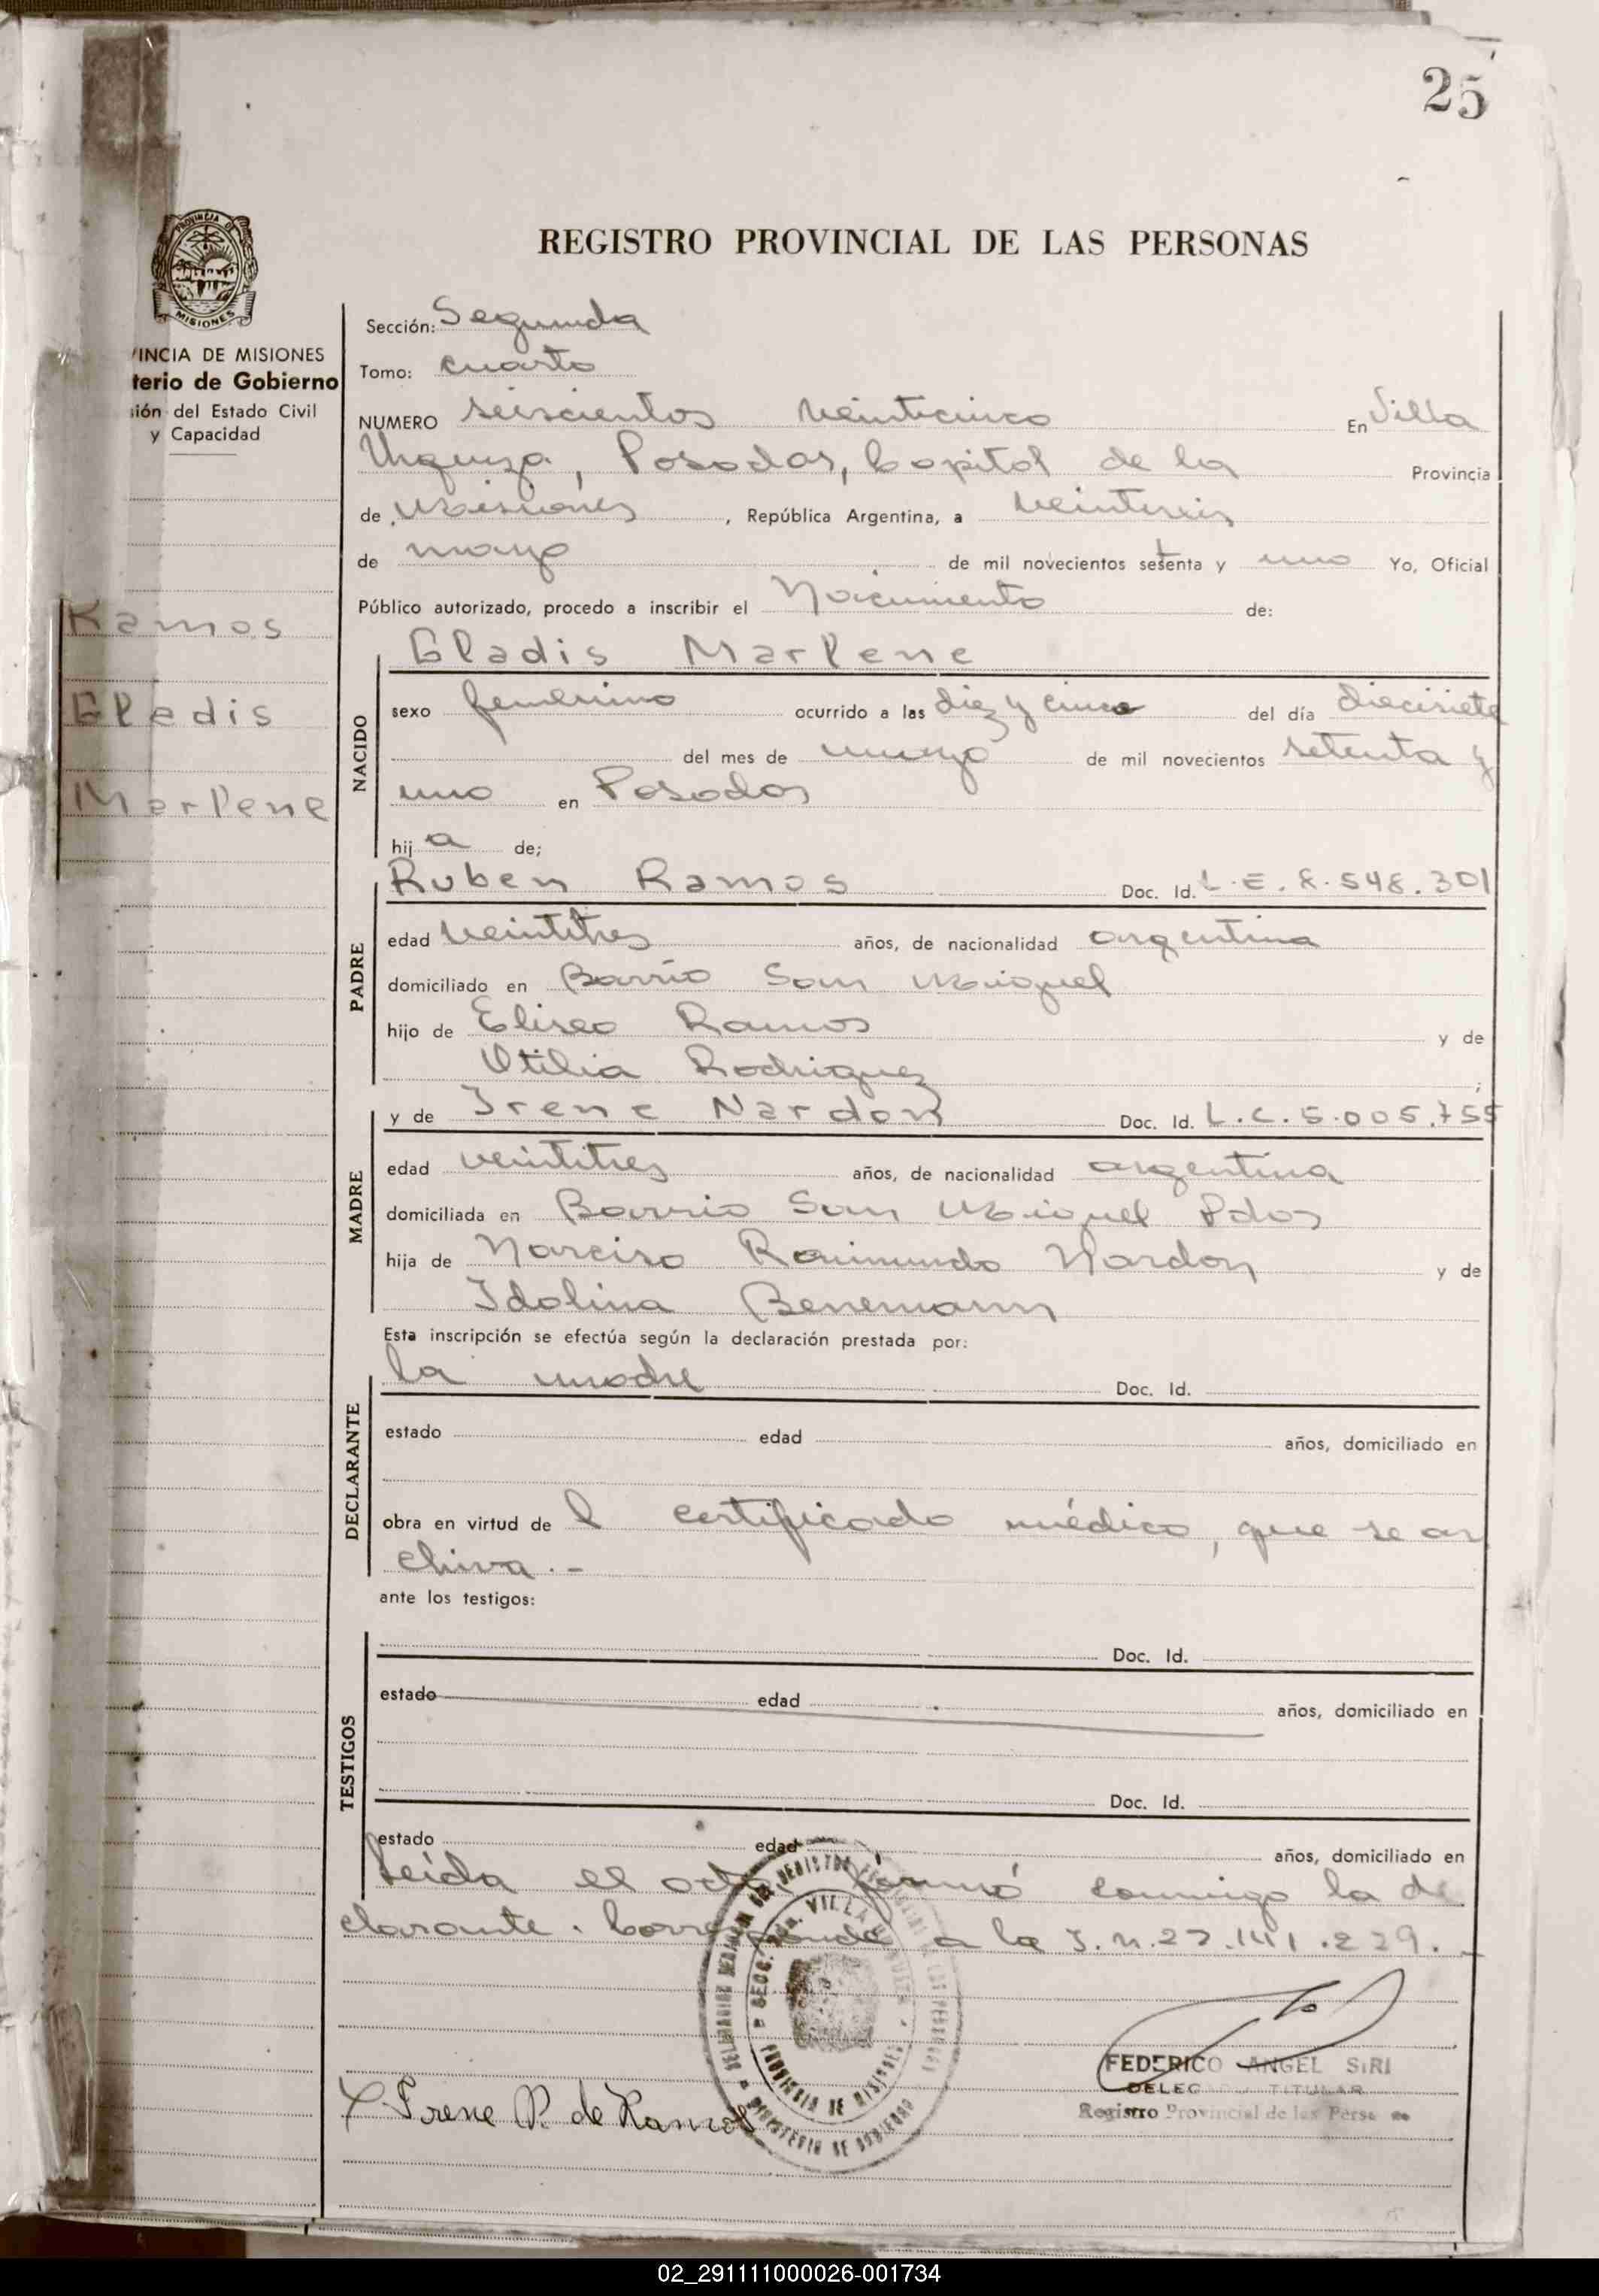 25
REGISTRO PROVINCIAL DE LAS PERSONAS
PROVINCIA DE
MISIONES
VINCIA DE MISIONES
terio de Gobierno
ión del Estado Civil
y Capacidad
Ramos
Gladis
Marlene
Sección: Segunda
Tomo: cuarto
NUMERO seiscientos veinticinco En Villa
Urquiza, Posadas, Capital de la Provincia
de Misiones, República Argentina, a veintiseis
de mayo de mil novecientos setenta y uno Yo, Oficial
Público autorizado, procedo a inscribir el Nacimiento de:
Gladis Marlene
NACIDO
sexo femenino ocurrido a las diez y cinco del día diecisiete
del mes de mayo de mil novecientos setenta y
uno en Posadas
hij a de;
PADRE
Ruben Ramos Doc. Id. L.E. 8.548.301
edad veintitres años, de nacionalidad argentina
domiciliado en Barrio San Miguel
hijo de Eliseo Ramos y de
Otilia Rodriguez ;
MADRE
y de Irene Nardon Doc. Id. L.C. 5.005.755
edad veintitres años, de nacionalidad argentina
domiciliada en Barrio San Miguel Pdas
hija de Narciso Raimundo Nardon y de
Idolina Benemann
Esta inscripción se efectúa según la declaración prestada por:
DECLARANTE
la madre Doc. Id.
estado edad años, domiciliado en
obra en virtud de l certificado médico, que se ar
chiva.-
ante los testigos:
TESTIGOS
Doc. Id.
estado edad años, domiciliado en
Doc. Id.
estado edad años, domiciliado en
Leida el acta, firmó conmigo la de
clarante. Corresponde a la I.N. 22.141.229.-
SECC. VILLA URQUIZA
PROVINCIA DE MISIONES
MINISTERIO DE GOBIERNO
FEDERICO ANGEL SIRI
DELEGADO TITULAR
Registro Provincial de las Perso
Irene N. de Ramos
02_291111000026-001734